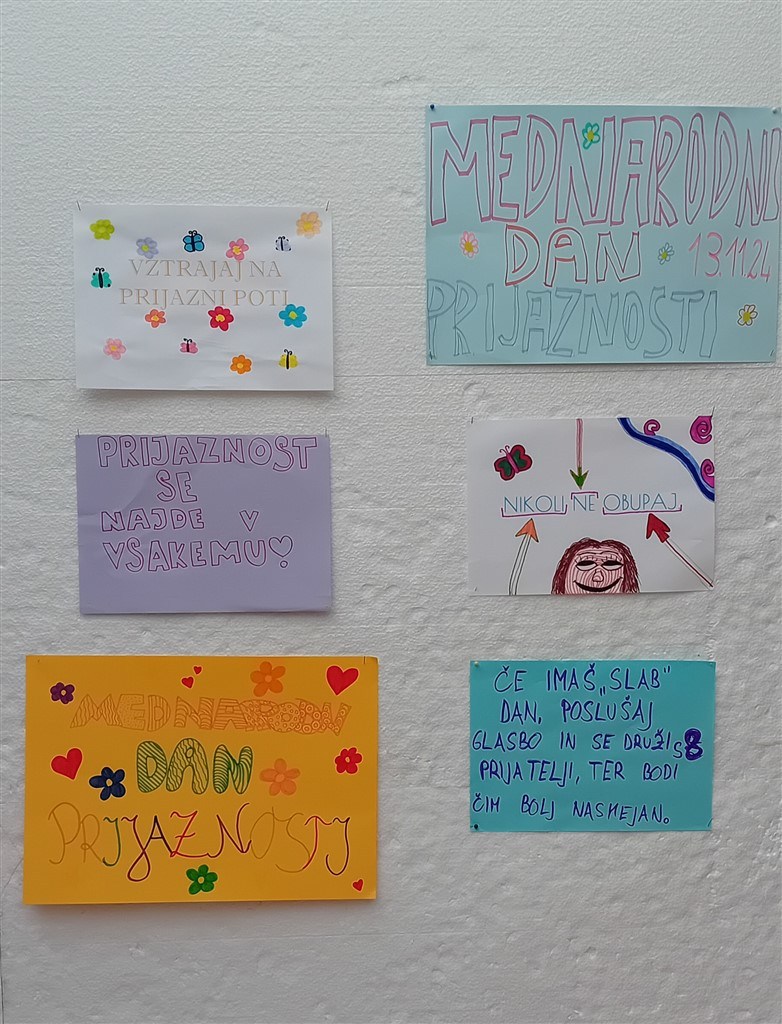 VZTRAJAJ NA
PRIJAZNI POTI
MEDNARODNI
DAN
13.11.24
PRIJAZNOSTI
PRIJAZNOST
SE
NAJDE V
VSAKEMU♡
NIKOLI NE OBUPAJ.
MEDNARODNI
DAN
PRIJAZNOSTI
ČE IMAŠ „SLAB"
DAN, POSLUŠAJ
GLASBO IN SE DRUŽI S
PRIJATELJI, TER BODI
ČIM BOLJ NASMEJAN.